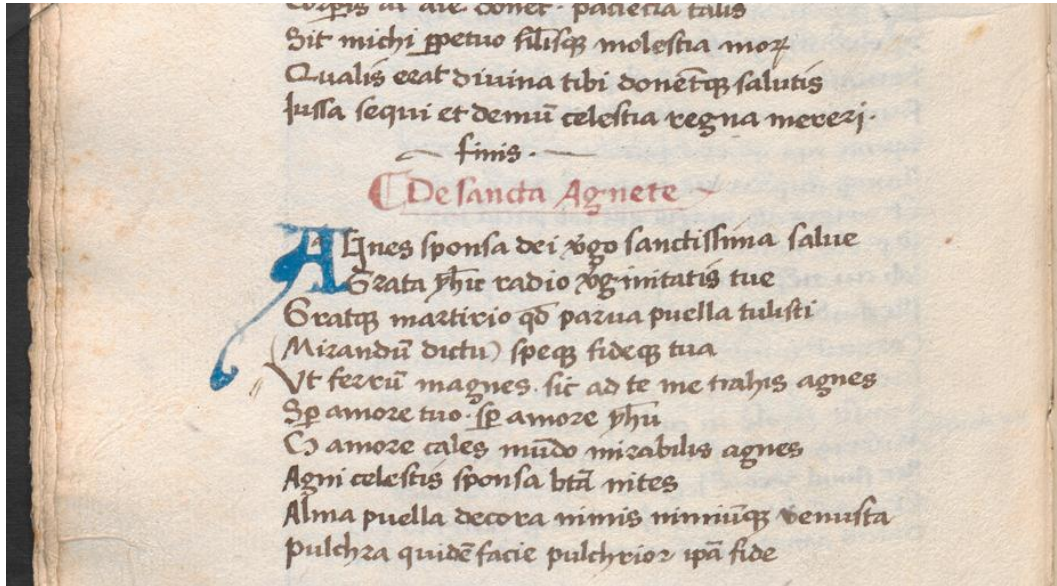 Corꝑis ac aĩe donet · paciẽcia talis
Sit michi ꝑpetuo filiisqꝫ molestia morꝫ
Qualis erat divina tibi donẽtqꝫ salutis
Jussa sequi et demũ celestia regna mereri ·
finis ·
De sancta Agnete
AGnes sponsa dei v̾go sanctissima salue
Grata yħu radio v̾ginitatis tue
Grataqꝫ martirio qđ parua puella tulisti
(Mirandũ dictu) speqꝫ fideqꝫ tua
Vt ferrũ magnes · sic ad te me trahis agnes
Sꝑ amore tuo · sꝑ amore yħu
amore cales mũdo mirabilis agnes
Agni celestis sponsa btã nites
Alma puella decora nimis nimiũqꝫ venusta
Pulchra quidẽ facie pulchrior ipã fide